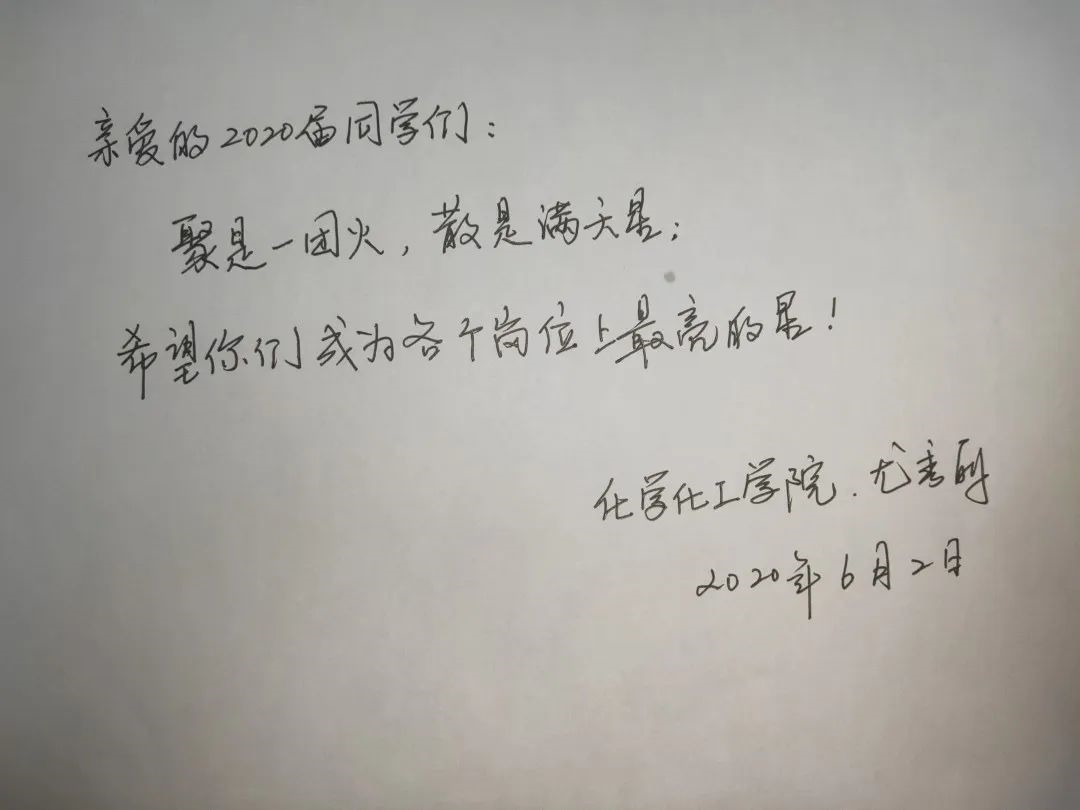 亲爱的2020届同学们：
聚是一团火，散是满天星；
希望你们成为各个岗位上最亮的星！
化学化工学院.尤秀丽
2020年6月2日